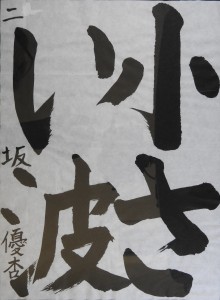 小さ
い波
二 坂 優杏